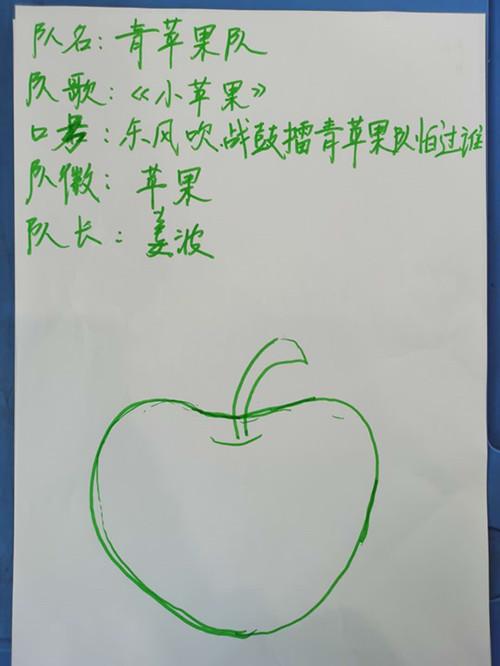 队名：青苹果队
队歌：《小苹果》
口号：东风吹.战鼓擂青苹果队怕过谁
队徽：苹果
队长：姜波